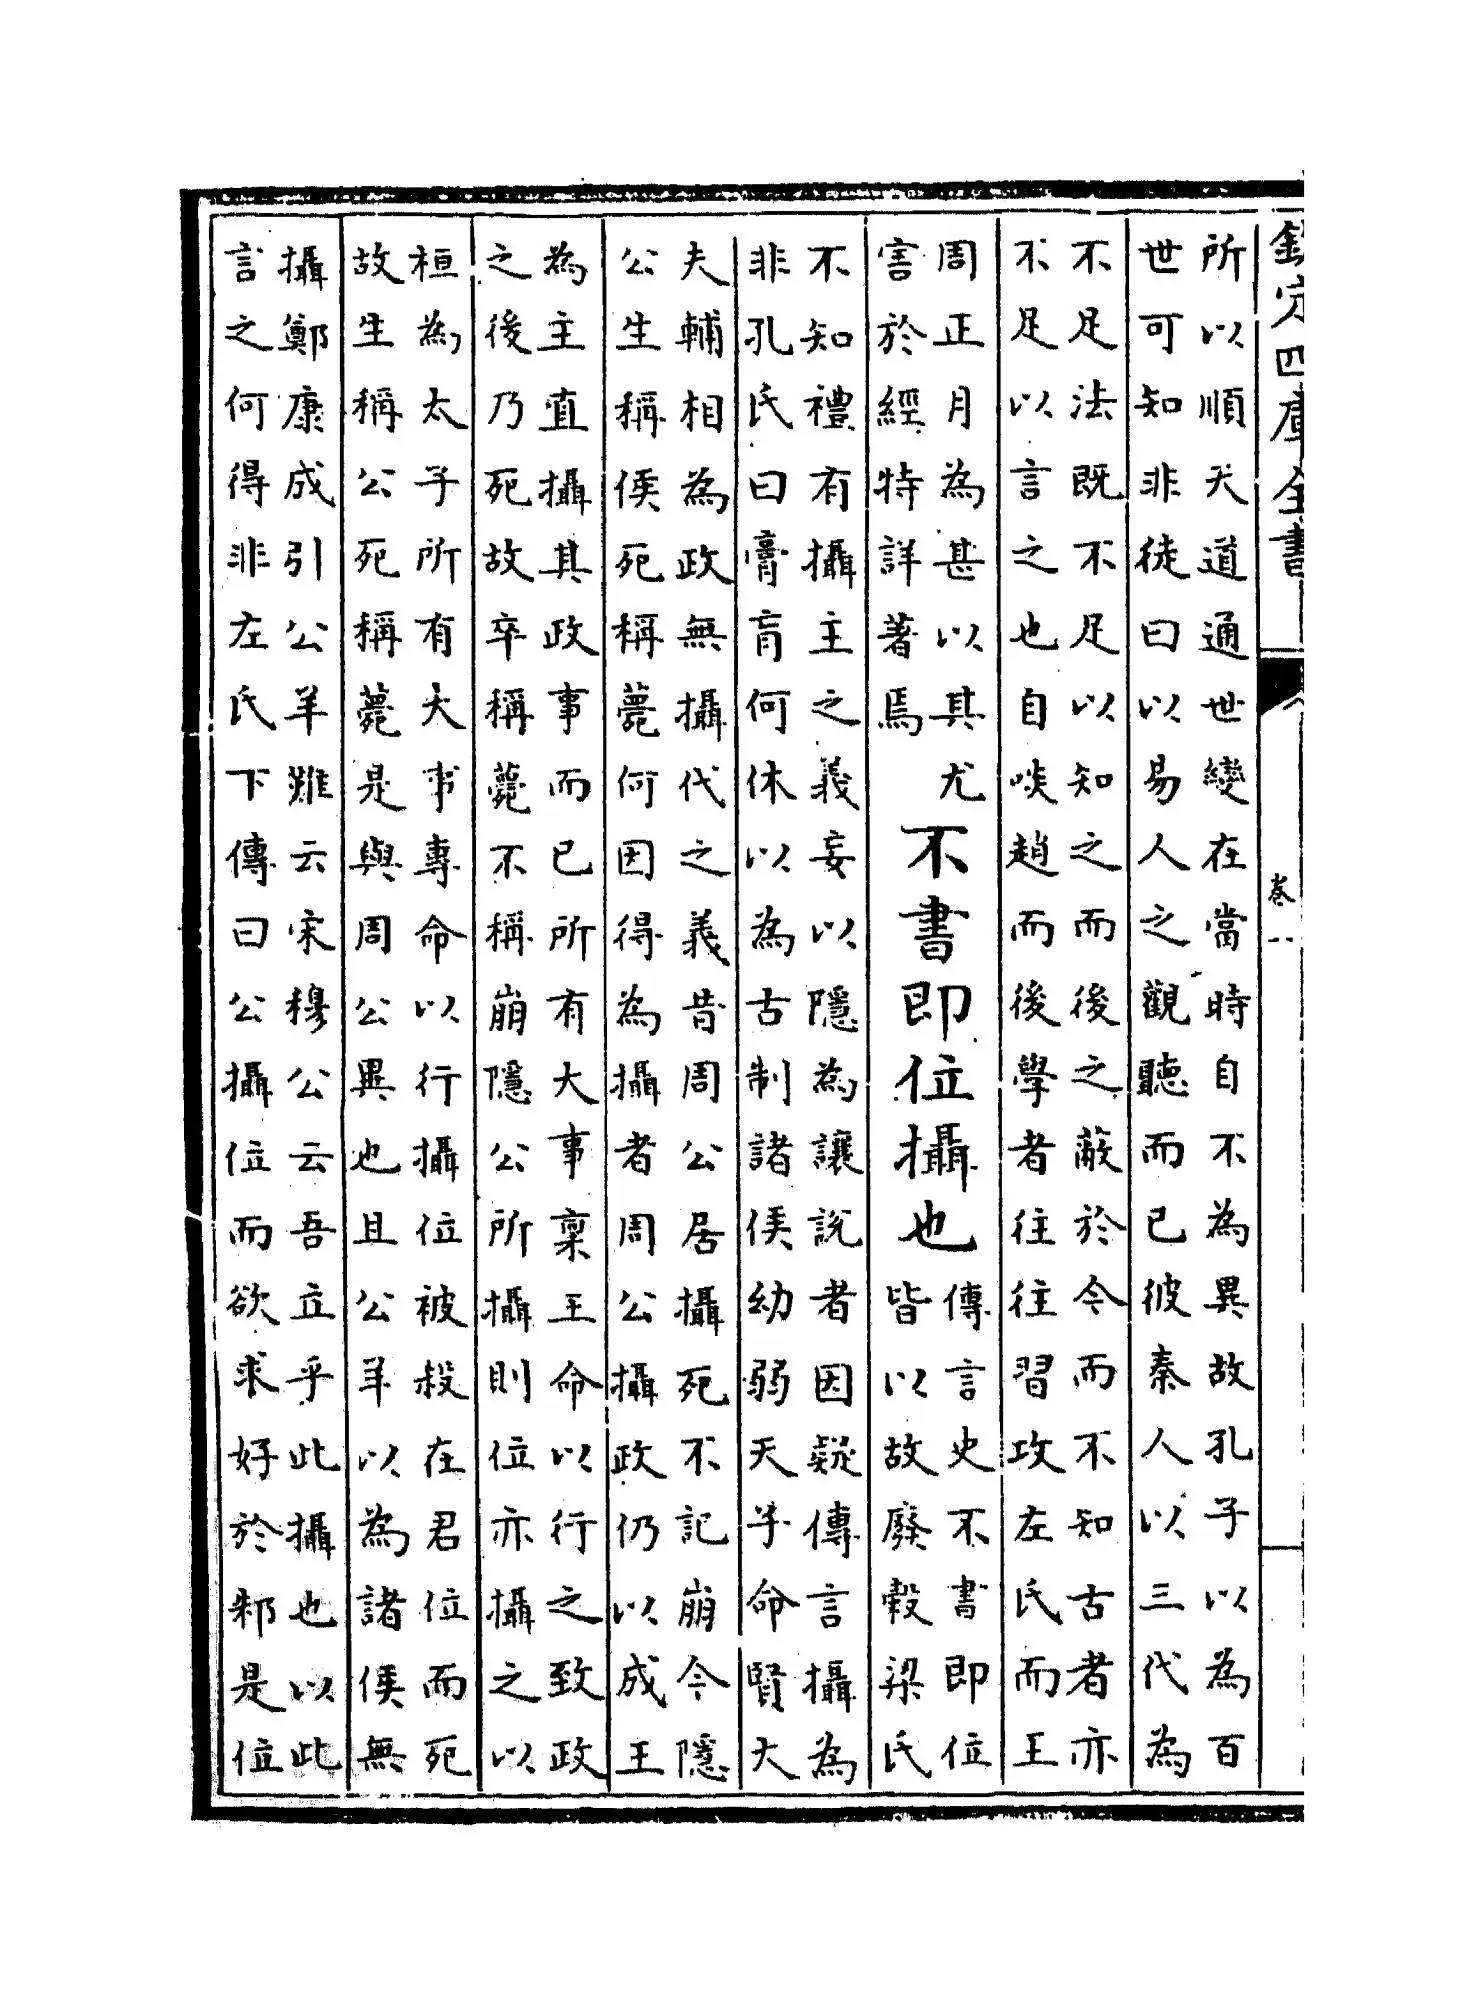 欽定四庫全書
卷一
所以順天道通世變在當時自不為異故孔子以為百
世可知非徒曰以易人之觀聽而已彼秦人以三代為
不足法既不足以知之而後之蔽於今而不知古者亦
不足以言之也自啖趙而後學者往往習攻左氏而王
周正月為甚以其尤
害於經特詳著焉
不書即位攝也
傳言史不書即位
皆以故廢穀梁氏
不知禮有攝主之義妄以隱為讓說者因疑傳言攝為
非孔氏曰膏肓何休以為古制諸侯幼弱天子命賢大
夫輔相為政無攝代之義昔周公居攝死不記崩今隱
公生稱侯死稱薨何因得為攝者周公攝政仍以成王
為主直攝其政事而已所有大事稟王命以行之致政
之後乃死故卒稱薨不稱崩隱公所攝則位亦攝之以
桓為太子所有大事專命以行攝位被殺在君位而死
故生稱公死稱薨是與周公異也且公羊以為諸侯無
攝鄭康成引公羊難云宋穆公云吾立乎此攝也以此
言之何得非左氏下傳曰公攝位而欲求好於邾是位